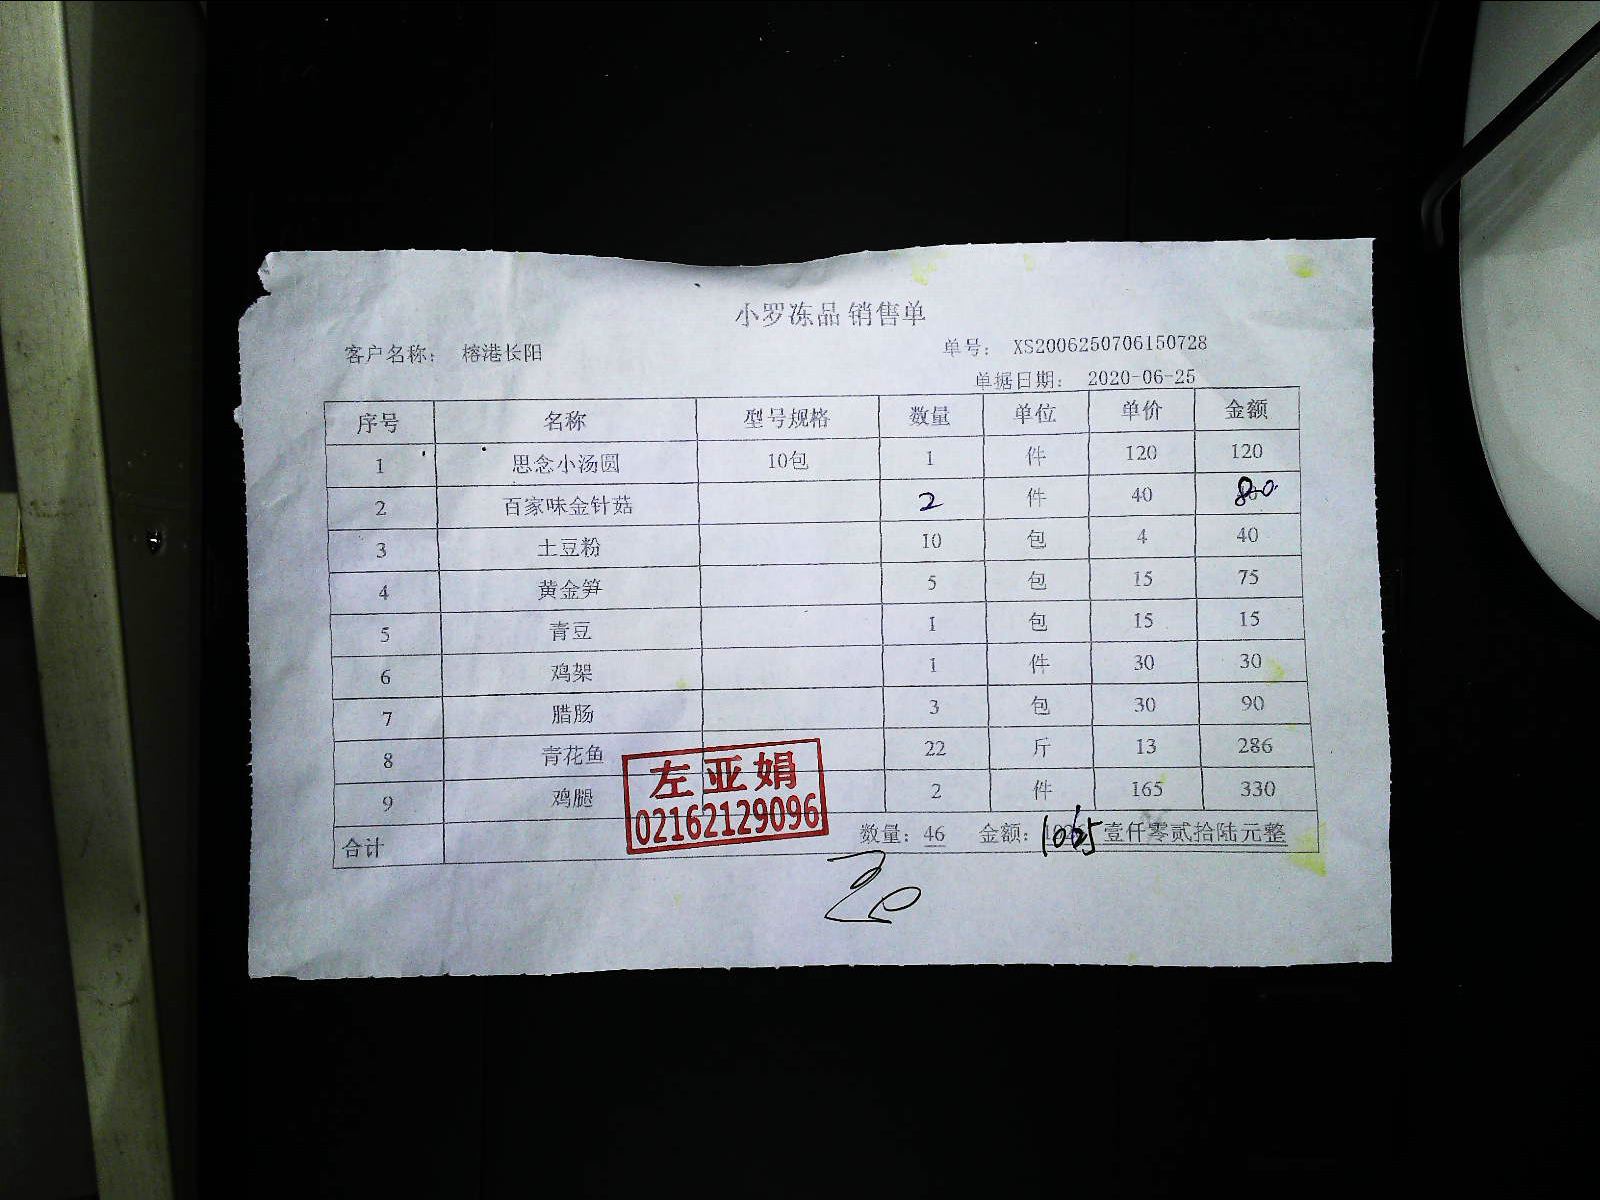 小罗冻品 销售单
客户名称： 榕港长阳 单号： XS2006250706150728
单据日期： 2020-06-25
序号 名称 型号规格 数量 单位 单价 金额
1 思念小汤圆 10包 1 件 120 120
2 百家味金针菇 2 件 40 80
3 土豆粉 10 包 4 40
4 黄金笋 5 包 15 75
5 青豆 1 包 15 15
6 鸡架 1 件 30 30
7 腊肠 3 包 30 90
8 青花鱼 22 斤 13 286
9 鸡腿 2 件 165 330
左亚娟
02162129096
合计 数量：46 金额： 1065 壹仟零贰拾陆元整